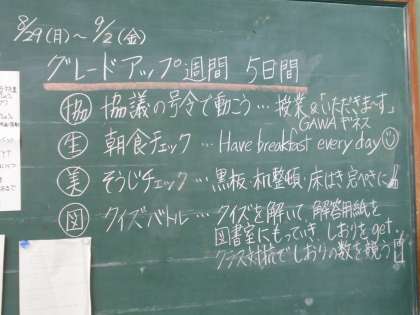 8/29(月)～9/2(金)
グレードアップ週間 5日間
協 協議の号令で動こう…授業&「いただきま～す」
GAWAギネス
生 朝食チェック…Have breakfast every day
美 そうじチェック…黒板・机整頓・床はき完ぺきに
図 クイズバトル…クイズを解いて、解答用紙を
図書室にもっていき しおりをget.
クラス対抗でしおりの数を競う